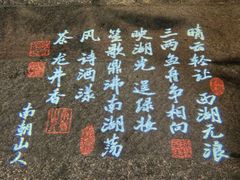 晴云轻让 西湖无浪
三两鱼舟争相向
映湖光 妆
笙歌鼎沸南湖荡
风 诗酒漾
茶龙井香
南朝山人